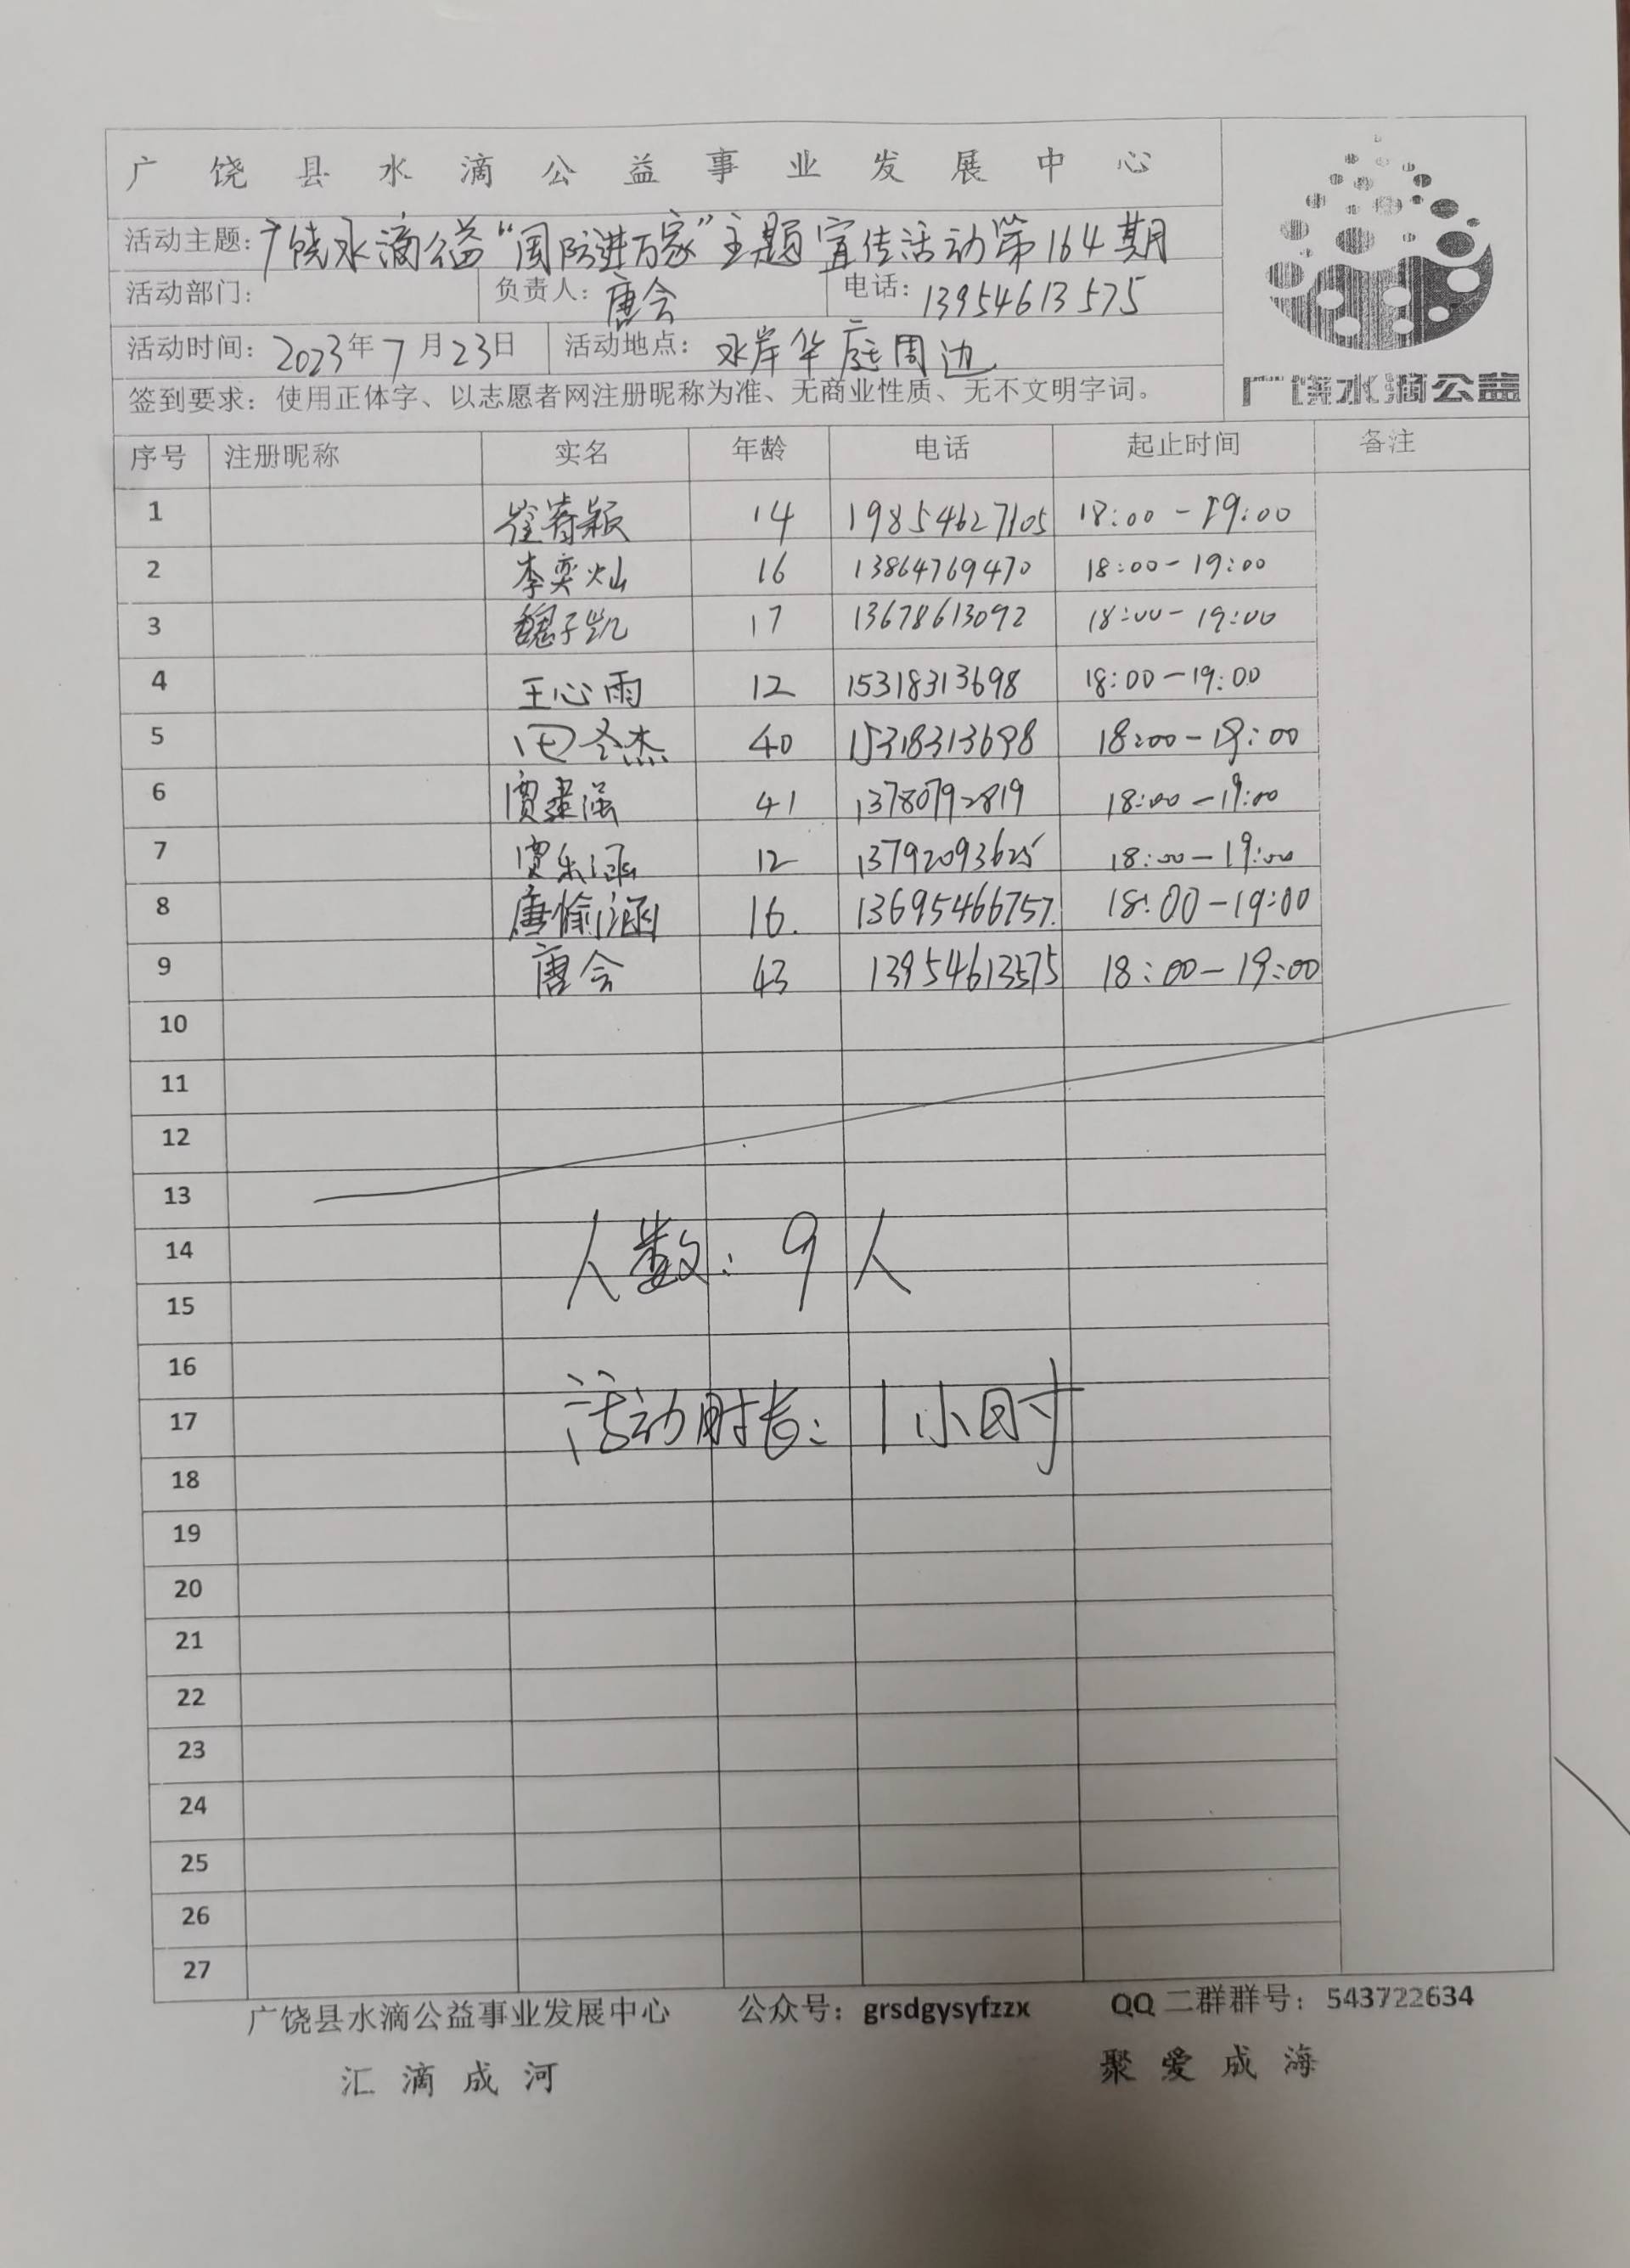 广饶县水滴公益事业发展中心
活动主题：广饶水滴公益“国防进万家”主题宣传活动第164期
活动部门： 负责人：唐会 电话：13954613575
活动时间：2023年7月23日 活动地点：水岸华庭周边
签到要求：使用正体字、以志愿者网注册昵称为准、无商业性质、无不文明字词。
广饶水滴公益
序号 注册昵称 实名 年龄 电话 起止时间 备注
1 14 19854627105 18:00-19:00
2 李奕灿 16 13864769470 18:00-19:00
3 魏子凯 17 13678613092 18:00-19:00
4 王心雨 12 15318313698 18:00-19:00
5 40 15318313698 18:00-19:00
6 贾建强 41 13780792819 18:00-19:00
7 贾乐涵 12 13792093625 18:00-19:00
8 唐愉涵 16. 13695466757. 18:00-19:00
9 唐会 43 13954613575 18:00-19:00
10
11
12
13
14 人数：9人
15
16
17 活动时长：1小时
18
19
20
21
22
23
24
25
26
27
广饶县水滴公益事业发展中心 公众号：grsdgysyfzzx QQ二群群号：543722634
汇滴成河 聚爱成海